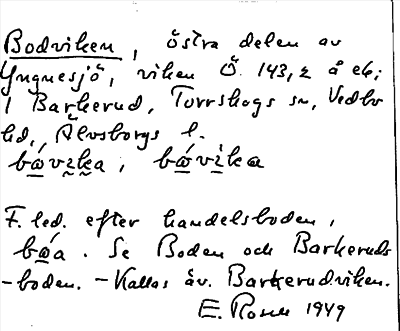 Bodviken, östra delen av
Yngnesjö, viken Ö. 143,2 å ek;
i Barkerud, Torrskogs sn, Vedbo
hd, Älvsborgs l.
F. led. efter handelsboden,
Se Boden och Barkeruds
-boden. – Kallas äv. Barkerudviken.
E. Rosen 1949